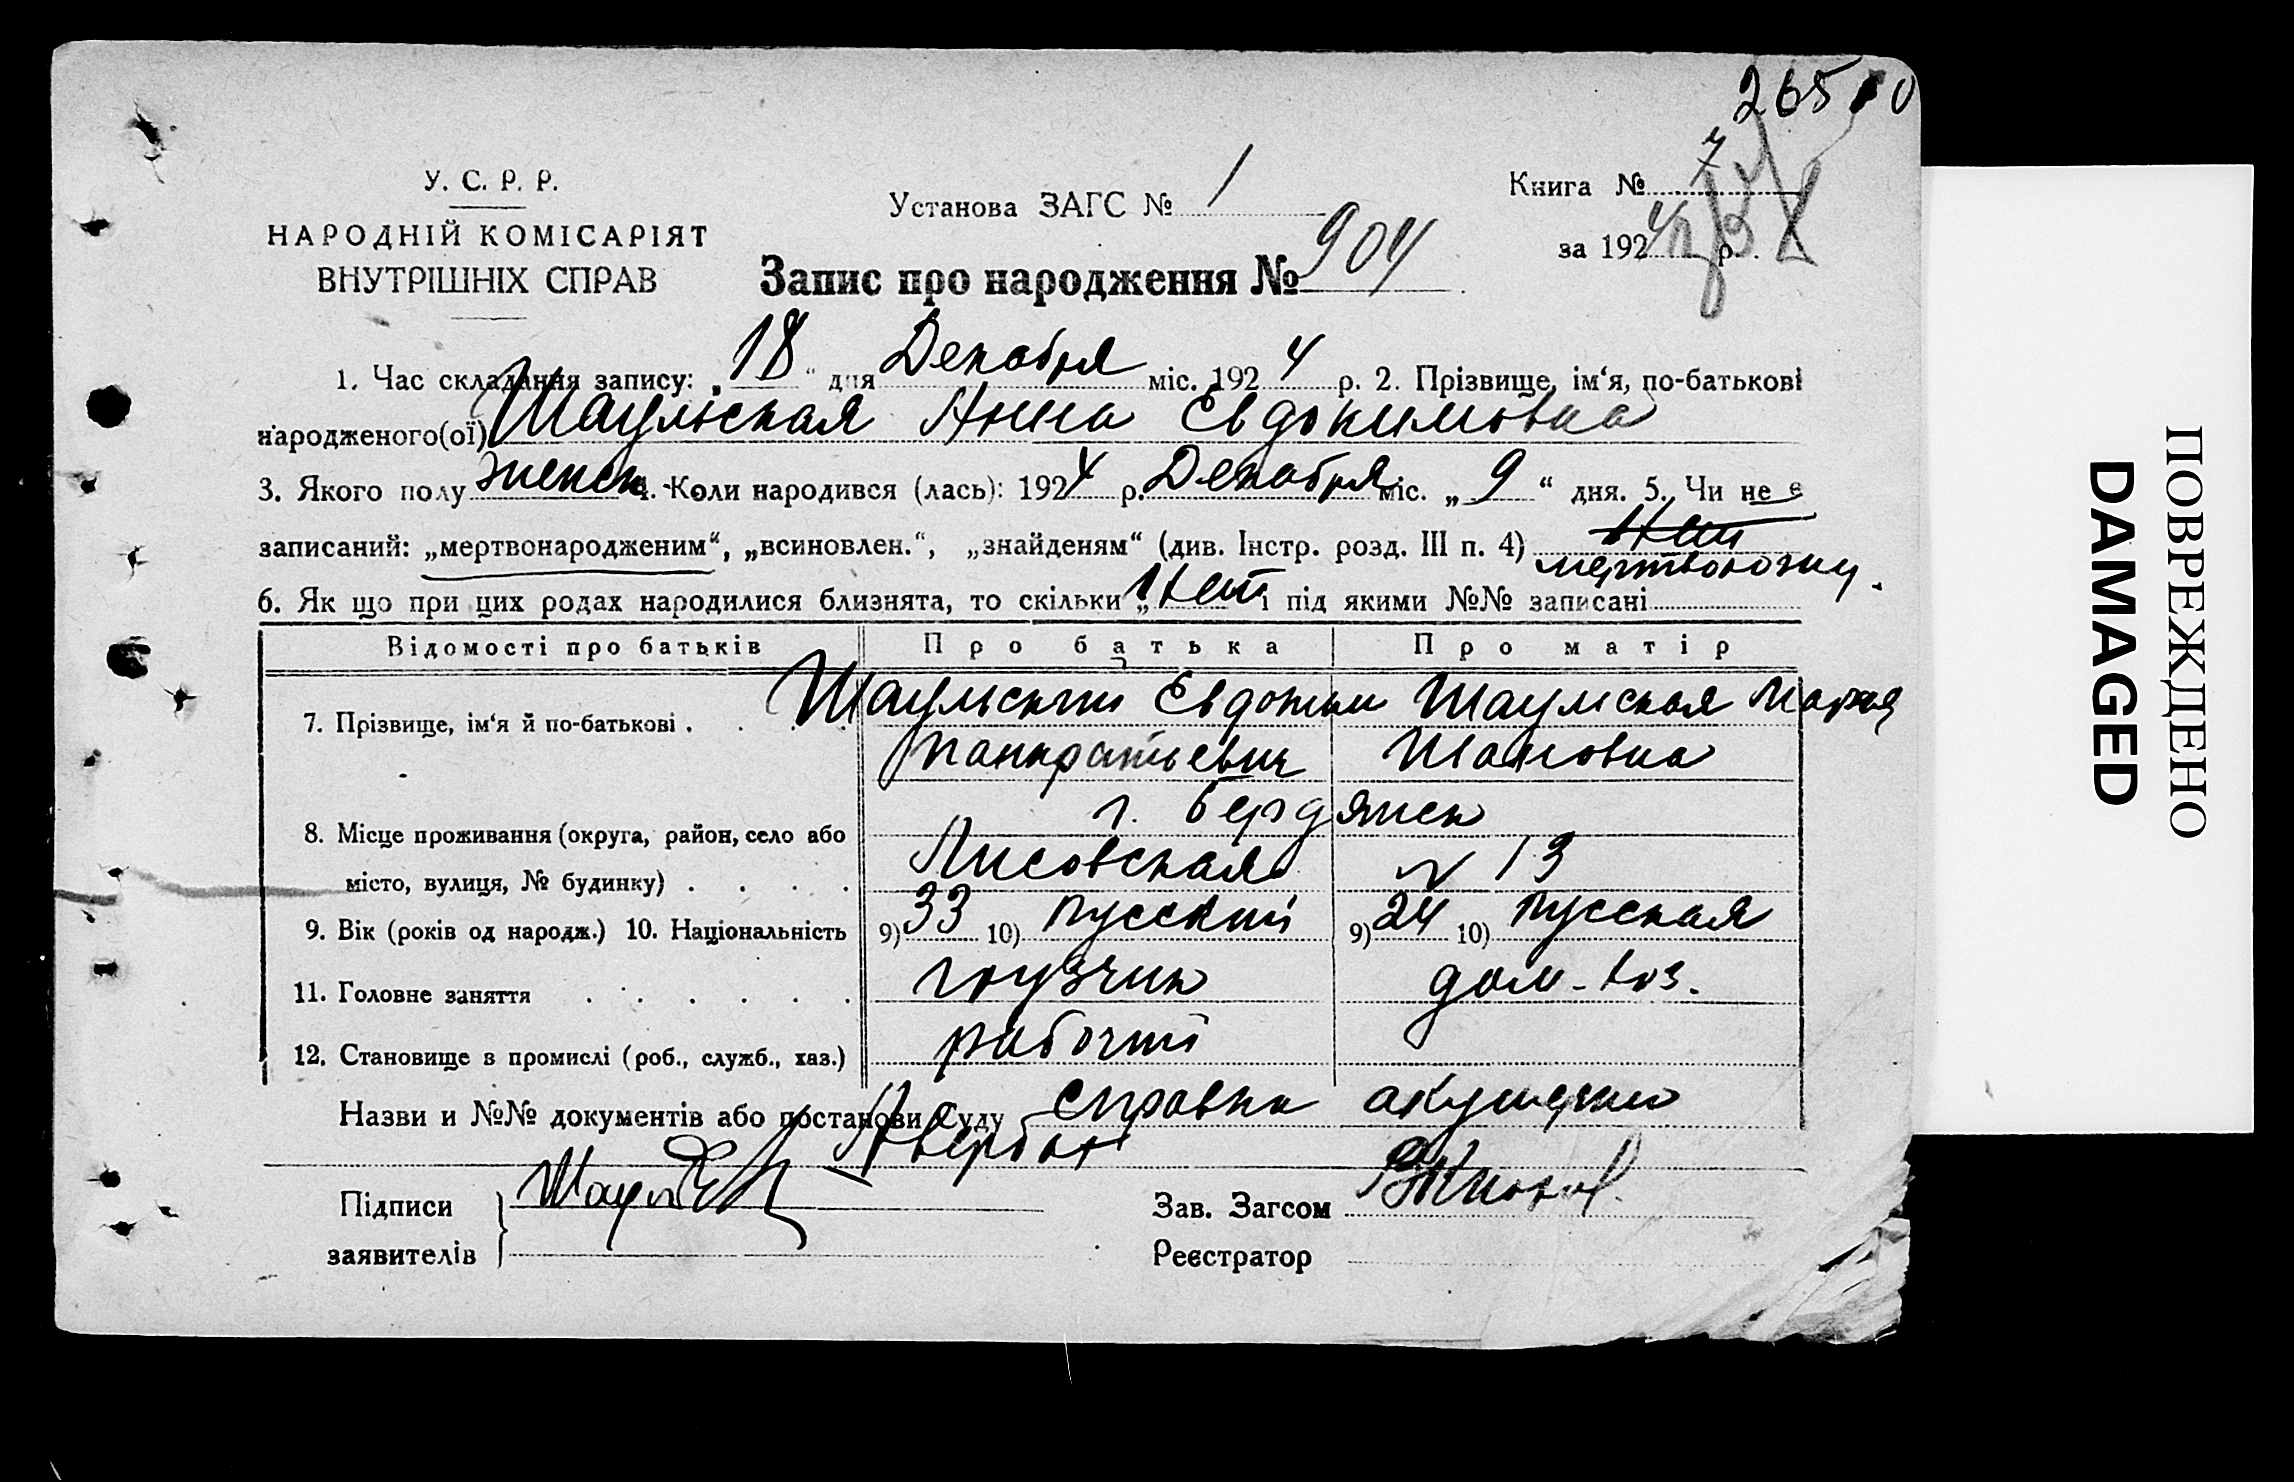 У. С. Р. Р.
НАРОДНІЙ КОМІСАРІЯТ
ВНУТРІШНІХ СПРАВ
Установа ЗАГС № 1
Книга № 7
за 1924 р.
Запис про народження № 904
1. Час складання запису: „18“ дня Декабря міс. 1924 р. 2. Прізвище, ім‘я, по-батькові
народженого(ої) Шаульская Анна Евдокимовна
3. Якого полу женск 4. Коли народився (лась): 1924 р. Декабря міс. „9“ дня. 5. Чи не є
записаний: „мертвонародженим“, „всиновлен.“, „знайденям“ (див. Інстр. розд. III п. 4) нет
6. Як що при цих родах народилися близнята, то скільки „нет і під якими №№ записані
Відомості про батьків Про батька Про матір
7. Прізвище, ім‘я й по-батькові . . . . Шаульский Евдоким Шаульская Мария
Панкратьевич
г. Бердянск
8. Місце проживання (округа, район, село або
місто, вулиця, № будинку) . . . . Лисовская № 13
9. Вік (років од народж.) 10. Національність 9) 33 10) русский 9) 24 10) русская
11. Головне заняття . . . . . . грузчик дом-хоз.
12. Становище в промислі (роб., служб., хаз.) рабочий
Назви и №№ документів або постанови Суду справка акушерки
Авербах
Підписи
заявителів
Зав. Загсом
Реєстратор
ПОВРЕЖДЕНО
DAMAGED